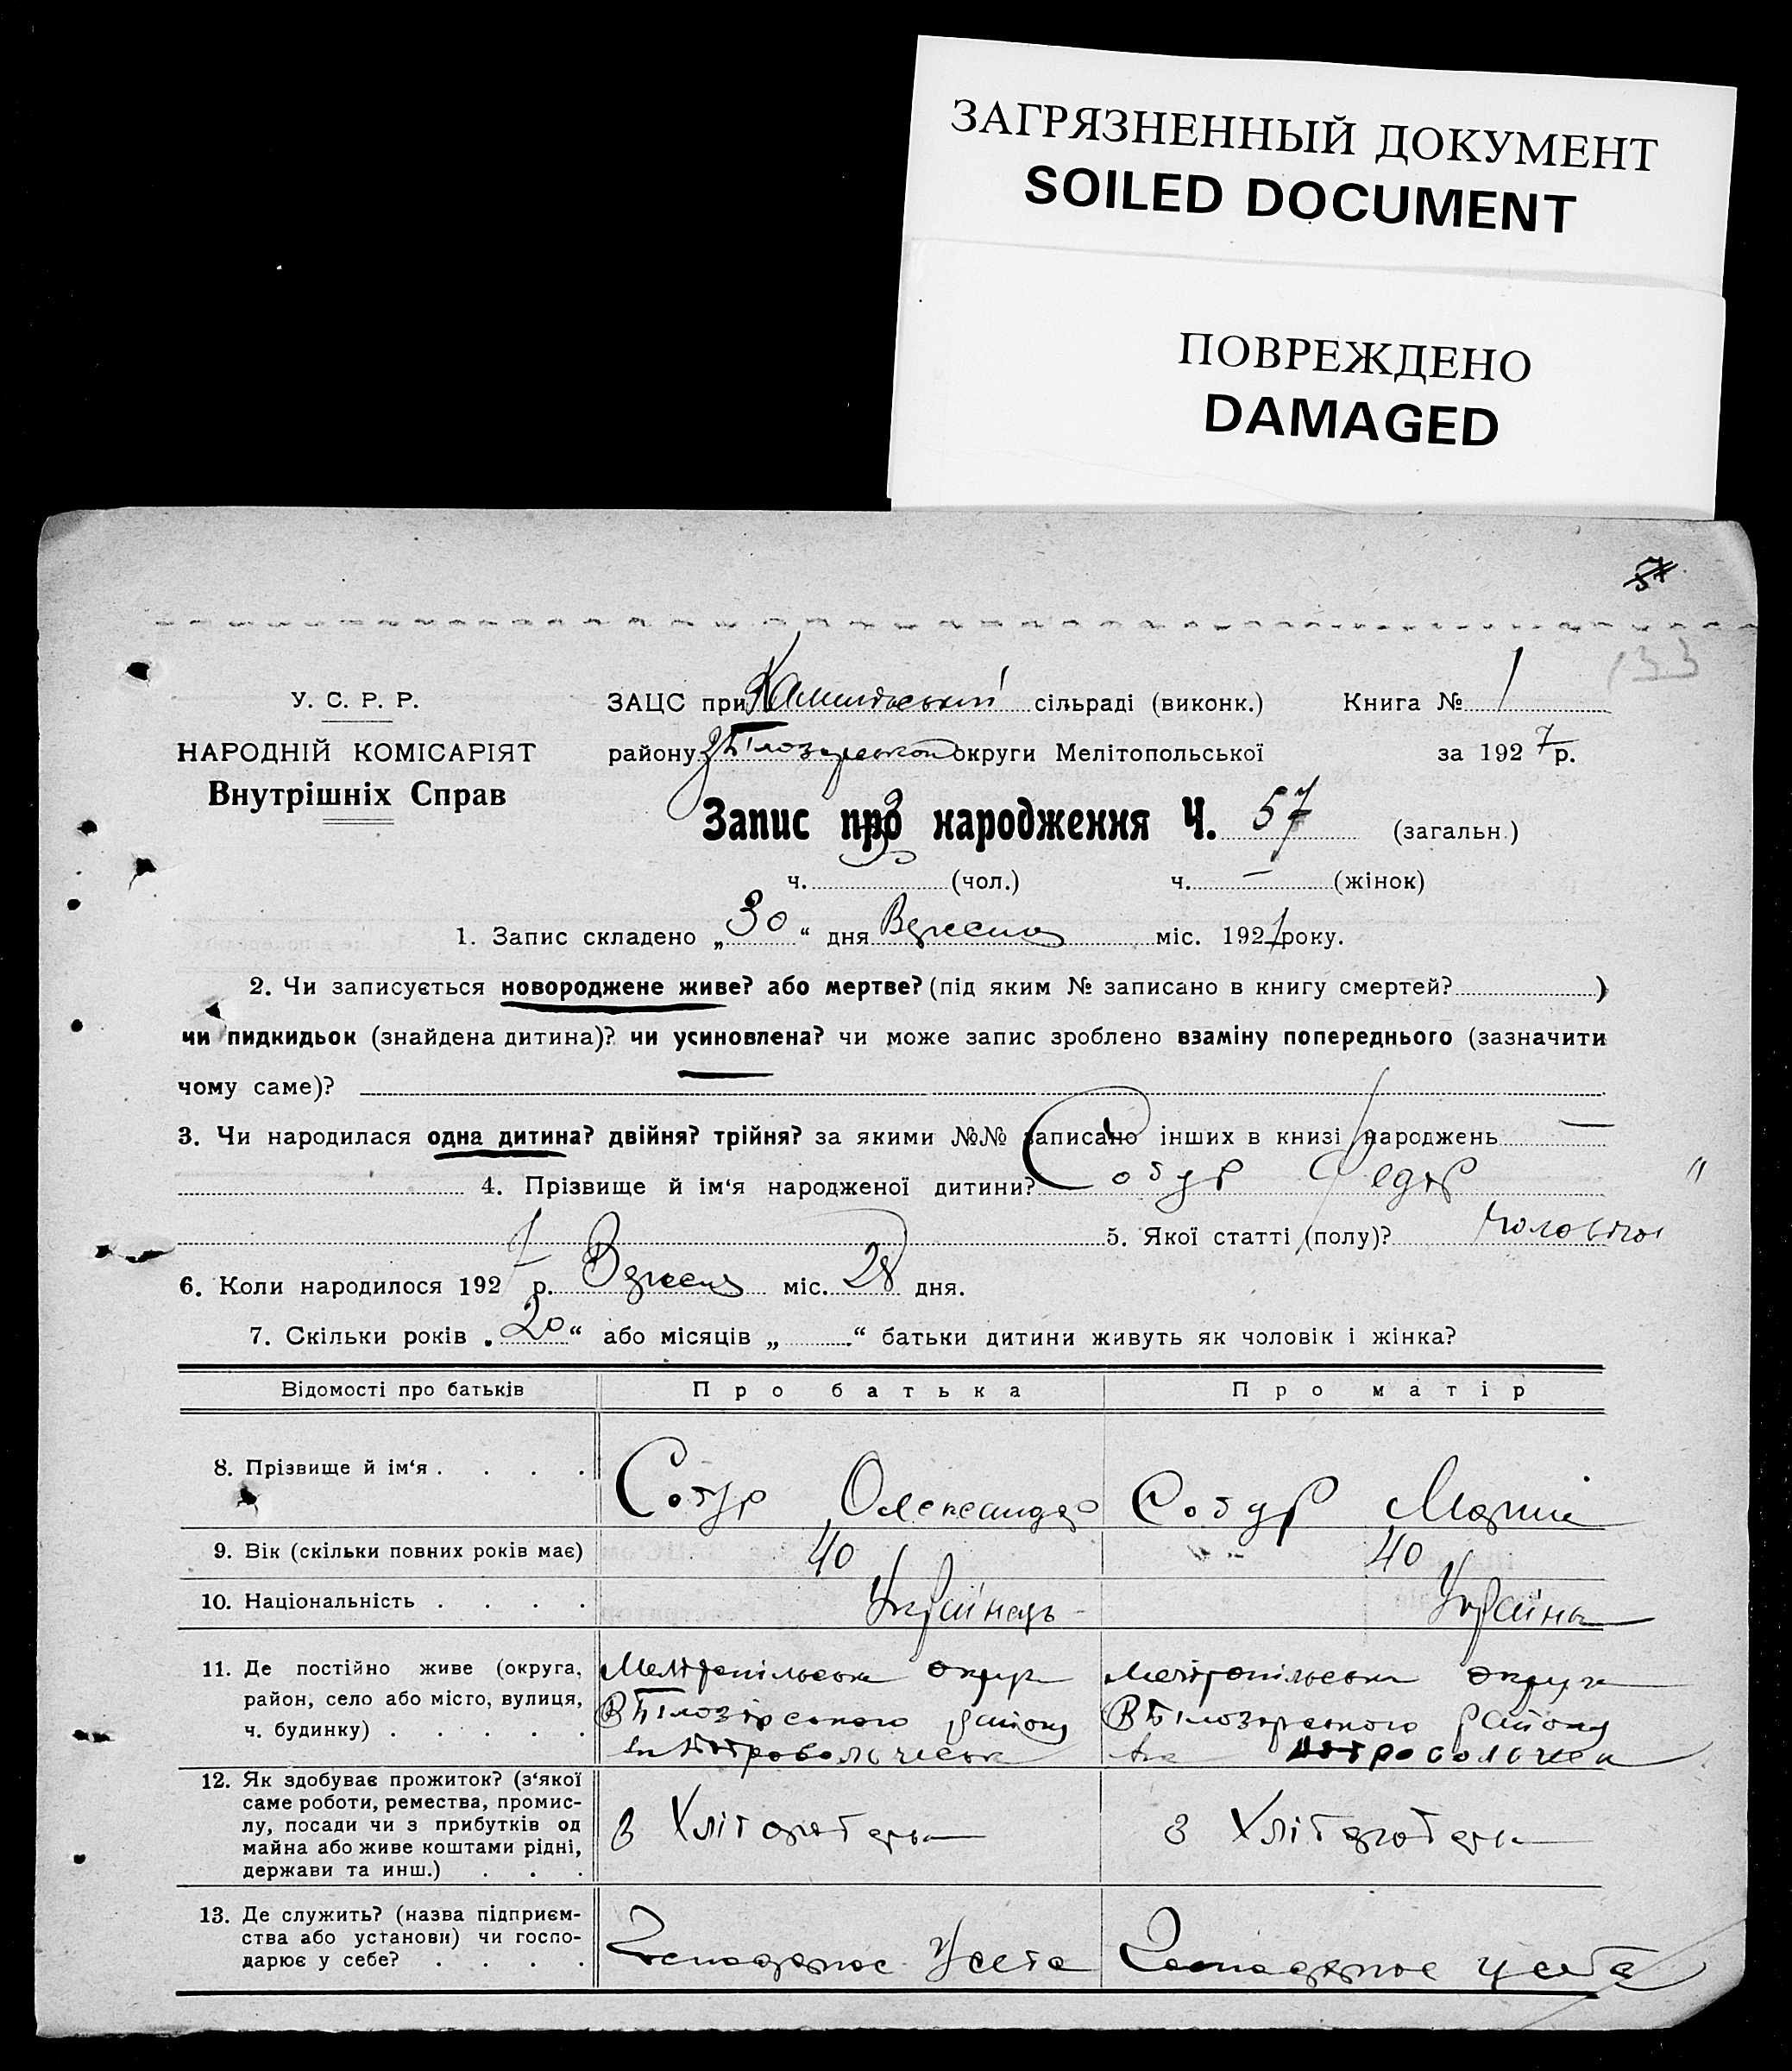 ЗАГРЯЗНЕННЫЙ ДОКУМЕНТ
SOILED DOCUMENT
ПОВРЕЖДЕНО
DAMAGED
133
У. С. Р. Р.
НАРОДНІЙ КОМІСАРІЯТ
Внутрішніх Справ
ЗАЦС при сільраді (виконк.) Книга № 1
району округи Мелітопольської за 1927 р.
Запис про народження Ч. 57 (загальн.)
ч. (чол.) ч. — (жінок)
1. Запис складено „30“ дня Вересня міс. 192 року.
2. Чи записується новороджене живе? або мертве? (під яким № записано в книгу смертей? )
чи пидкидьок (знайдена дитина)? чи усиновлена? чи може запис зроблено взаміну попереднього (зазначити
чому саме)?
3. Чи народилася одна дитина? двійня? трійня? за якими №№ записано інших в книзі народжень —
4. Прізвище й ім‘я народженої дитини? Собур Федор
5. Якої статті (полу)? чоловічої
6. Коли народилося 1927 р. Вересня міс. 28 дня.
7. Скільки років „20“ або місяців „ “ батьки дитини живуть як чоловік і жінка?
Відомості про батьків Про батька Про матір
8. Прізвище й ім‘я . . . . Собур Олександр Собур Мария
9. Вік (скільки повних років має) 40 40
10. Національність . . . . Українець Українка
11. Де постійно живе (округа, Мелітопільська округа Мелітопільська округа
район, село або місто, вулиця, В Білозірського району В Білозірського району
ч. будинку) . . . . .
12. Як здобуває прожиток? (з‘якої
саме роботи, ремества, промис-
лу, посади чи з прибутків од з Хліборобства з Хліборобства
майна або живе коштами рідні,
держави та инш.) . . .
13. Де служить? (назва підприєм-
ства або установи) чи госпо-
дарює у себе? . . . . Господарює у себе Господарює у себе